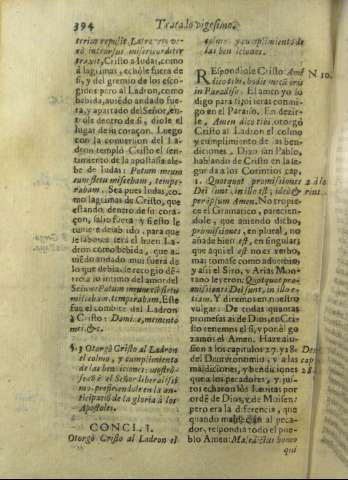 394
Tratado vigesimo.
terius repulit, Latronem ve-
rò introrsus misericorditer
traxit, Cristo a Iudas, como
à lagrimas, echòle fuera de
si, y del gremio de los esco-
gidos pero al Ladron, como
bebida, auiẽdo andado fue-
ra, y apartado del Señor, en-
trôle dentro de si, diole el
lugar de su coraçon. Luego
con la conuersion del La-
dron templò Cristo el sen-
timiento de la apostasia ale-
be de Iudas: Potum meum
cum fletu miscebam, tempe-
rabam. Sea pues Iudas, co-
mo lagrimas de Cristo, que
estando dentro de su cora-
çon, salio fuera y si esto le
tenia
le labaua será el buen La-
dron como bebida, que a-
uiẽdo andado mui fuera de
lo que debia se recogio dẽ-
tro à lo intimo del amor del
Señor: Potum meum cũ fletu
miscebam, temperabam. Este
fue el combite del Ladron
à Cristo: Domine, memento
mei, &c.
§. 3 Otorgò Cristo al Ladron
el colmo, y cumplimiento
de las bendiciones: mostrò-
se el Señor liberalissi-
mo, prefiriendole en la an-
ticipaciõ de la gloria à los
Apostoles.
CONCL. I.
Otorgò Cristo al Ladron el
colmo, y cumplimiento de
las bendiciones.
REspondiole Cristo: Amẽ
dico tibi, hodie mecũ eris
in Paradiso. El amen yo lo
digo para ti, oi seras conmi-
go en el Paraiso. En dezir-
le, Amen dico tibi, otorgò
Cristo al Ladron el colmo
y cumplimiento de las ben-
diciones. Dixo san Pablo,
hablando de Cristo en la se-
gunda a los Corintios cap.
1. Quotquot promissiones
Dei sunt, in illo est; ideò &
per ipsum Amen. No tropie-
ce el Gramatico, parecien-
dole, que auiendo dicho,
promissiones, en plural, no
añade bien est, en singular;
que aquel est no es verbo,
mas tomase como aduerbio,
y assi el Siro, y Arias Mon-
tano leyeron: Quotquot pro-
missiones Dei sunt, in illo e-
tiam. Y diremos en nuestro
vulgar: De todas quantas
promesas ai de Dios, en Cris
to tenemos el si, y por èl go-
zamos el Amen. Haze alu-
sion a los capitulos 27. y 28
del Deuteronomio, y a las
maldiciones, y bendiciones
que los pecadores, y jus-
tos echaron los Leuitas por
ordẽ de Dios, y de Moisen:
pero era la diferencia, que
quando maldecian al peca-
dor, respondia todo el pue-
blo Amen: Maledictus homo
qui
N 10.
2 ad Co
rint.
Deut.
cap.
28.